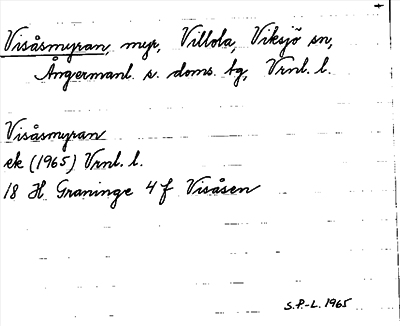 Visåsmyran, myr, Villola, Viksjö sn,
Ångermanl. s. doms. tg, Vrnl. l.
Visåsmyran
ek (1965) Vrnl. l.
18 H Graninge 4 f Visåsen
S.P.-L. 1965